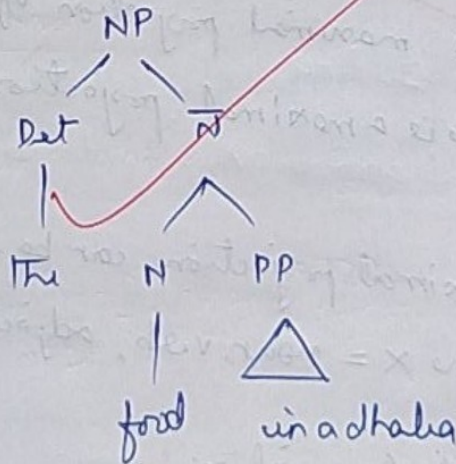 NP
Det N̅
The N PP
food in a dhaba